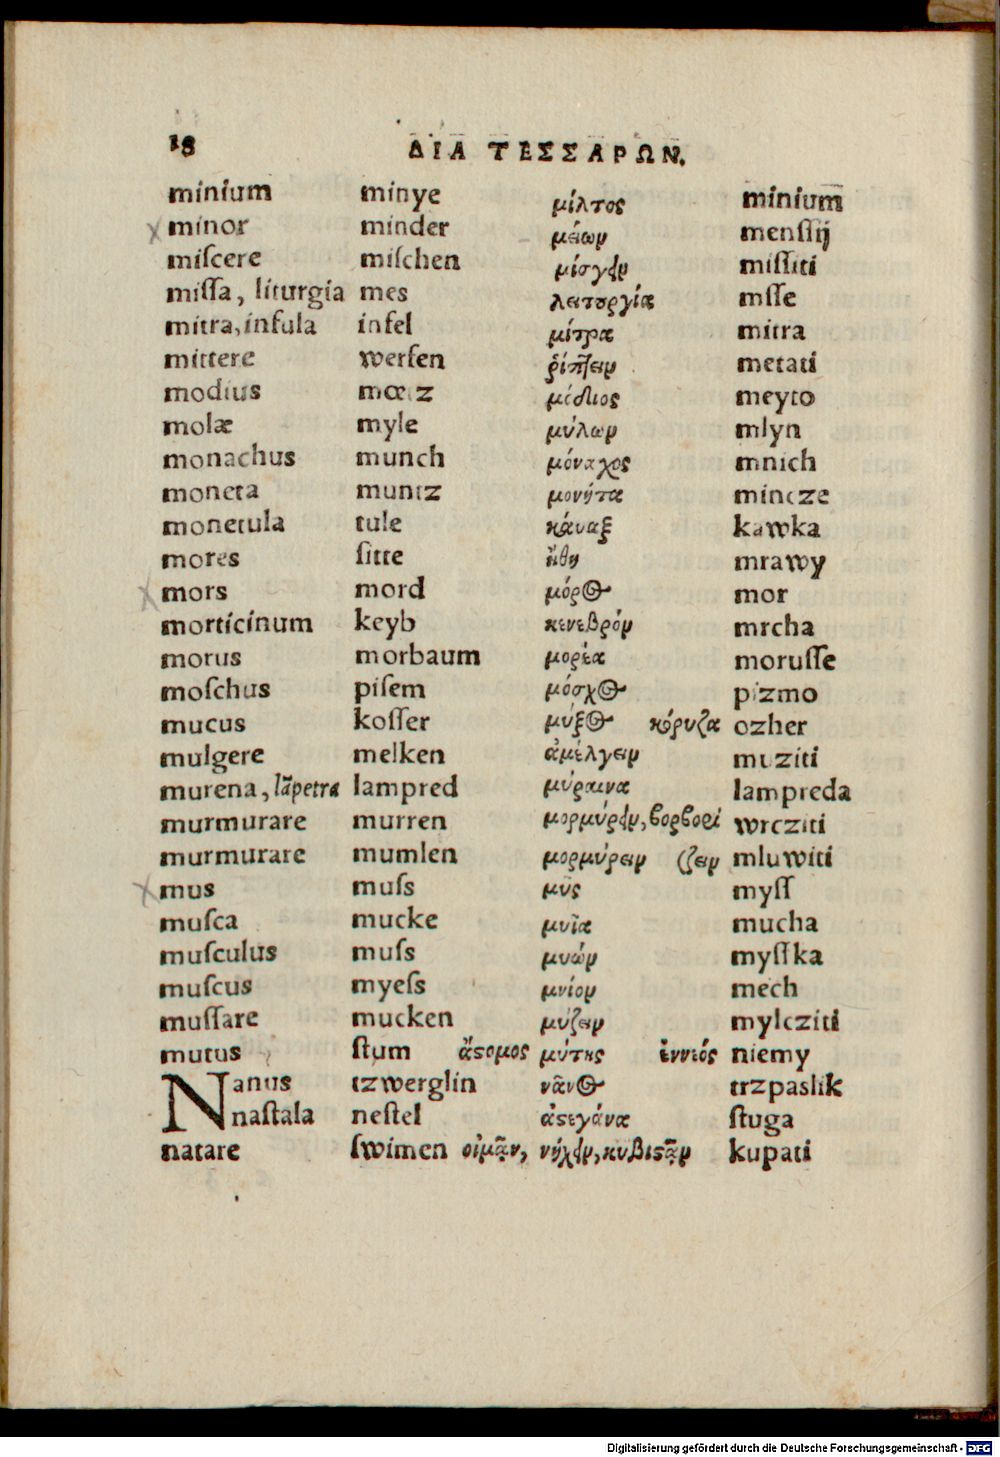 18 ΔΙΑ ΤΕΣΣΑΡΩΝ.
minium minye μίλτος miniūm
minor minder μείωρ menssij
miſcere miſchen μίσγειν miſſiti
miſſa, liturgia mes λειτουργία mſſe
mitra, infula infel μίτρα mitra
mittere werfen ῥίπτειν metati
modius mœtz μέδιος meyto
molæ myle μύλων mlyn
monachus munch μόναχος mnich
moneta muntz μονήτα mincze
monetula tule κάναξ kawka
mores ſitte ἤθη mrawy
mors mord μόρος mor
morticinum keyb κενεβρόν mrcha
morus morbaum μορέα moruſſe
moſchus piſem μόσχος pizmo
mucus koſſer μύξος κόρυζα ozher
mulgere melken ἀμέλγειν muziti
murena, lāpetra lampred μύραινα lampreda
murmurare murren μορμύρειν, βορβορί wrcziti
murmurare mumlen μορμύρειν (ζειν mluwiti
mus muſs μῦς myſſ
muſca mucke μυῖα mucha
muſculus muſs μυών myſſka
muſcus myeſs μνίον mech
muſſare mucken μύζειν mylcziti
mutus ſtum ἄστομος μύτης ἐννεός niemy
Nanus tzwerglin νᾶνος trzpaslik
naſtala neſtel ἀστεγάνα ſtuga
natare ſwimen οἰμᾶν, νήχειν, κυβιστᾶν kupati
Digitalisierung gefördert durch die Deutsche Forschungsgemeinschaft - DFG